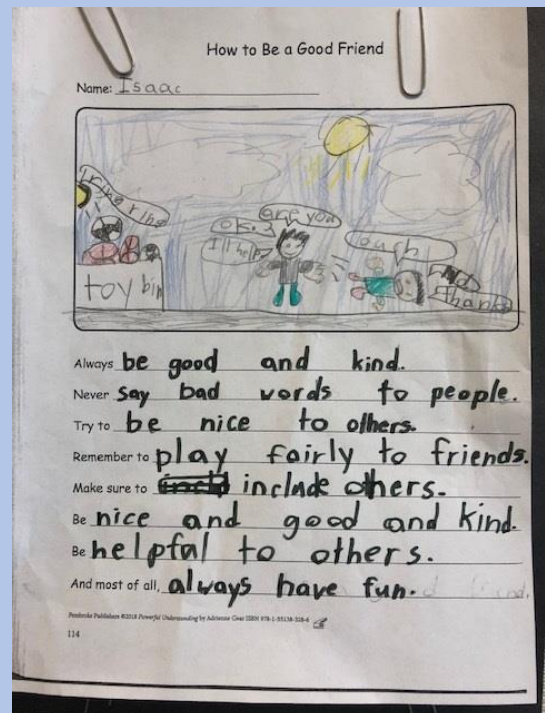 How to Be a Good Friend
Name: Isaac
ring ring
are you
ok?
I'll help
ouch
Thanks
toy bin
Always be good and kind.
Never say bad words to people.
Try to be nice to others.
Remember to play fairly to friends.
Make sure to include others.
Be nice and good and kind.
Be helpful to others.
And most of all, always have fun.
Pembroke Publishers ©2018 Powerful Understanding by Adrienne Gear ISBN 978-1-55138-328-6
114